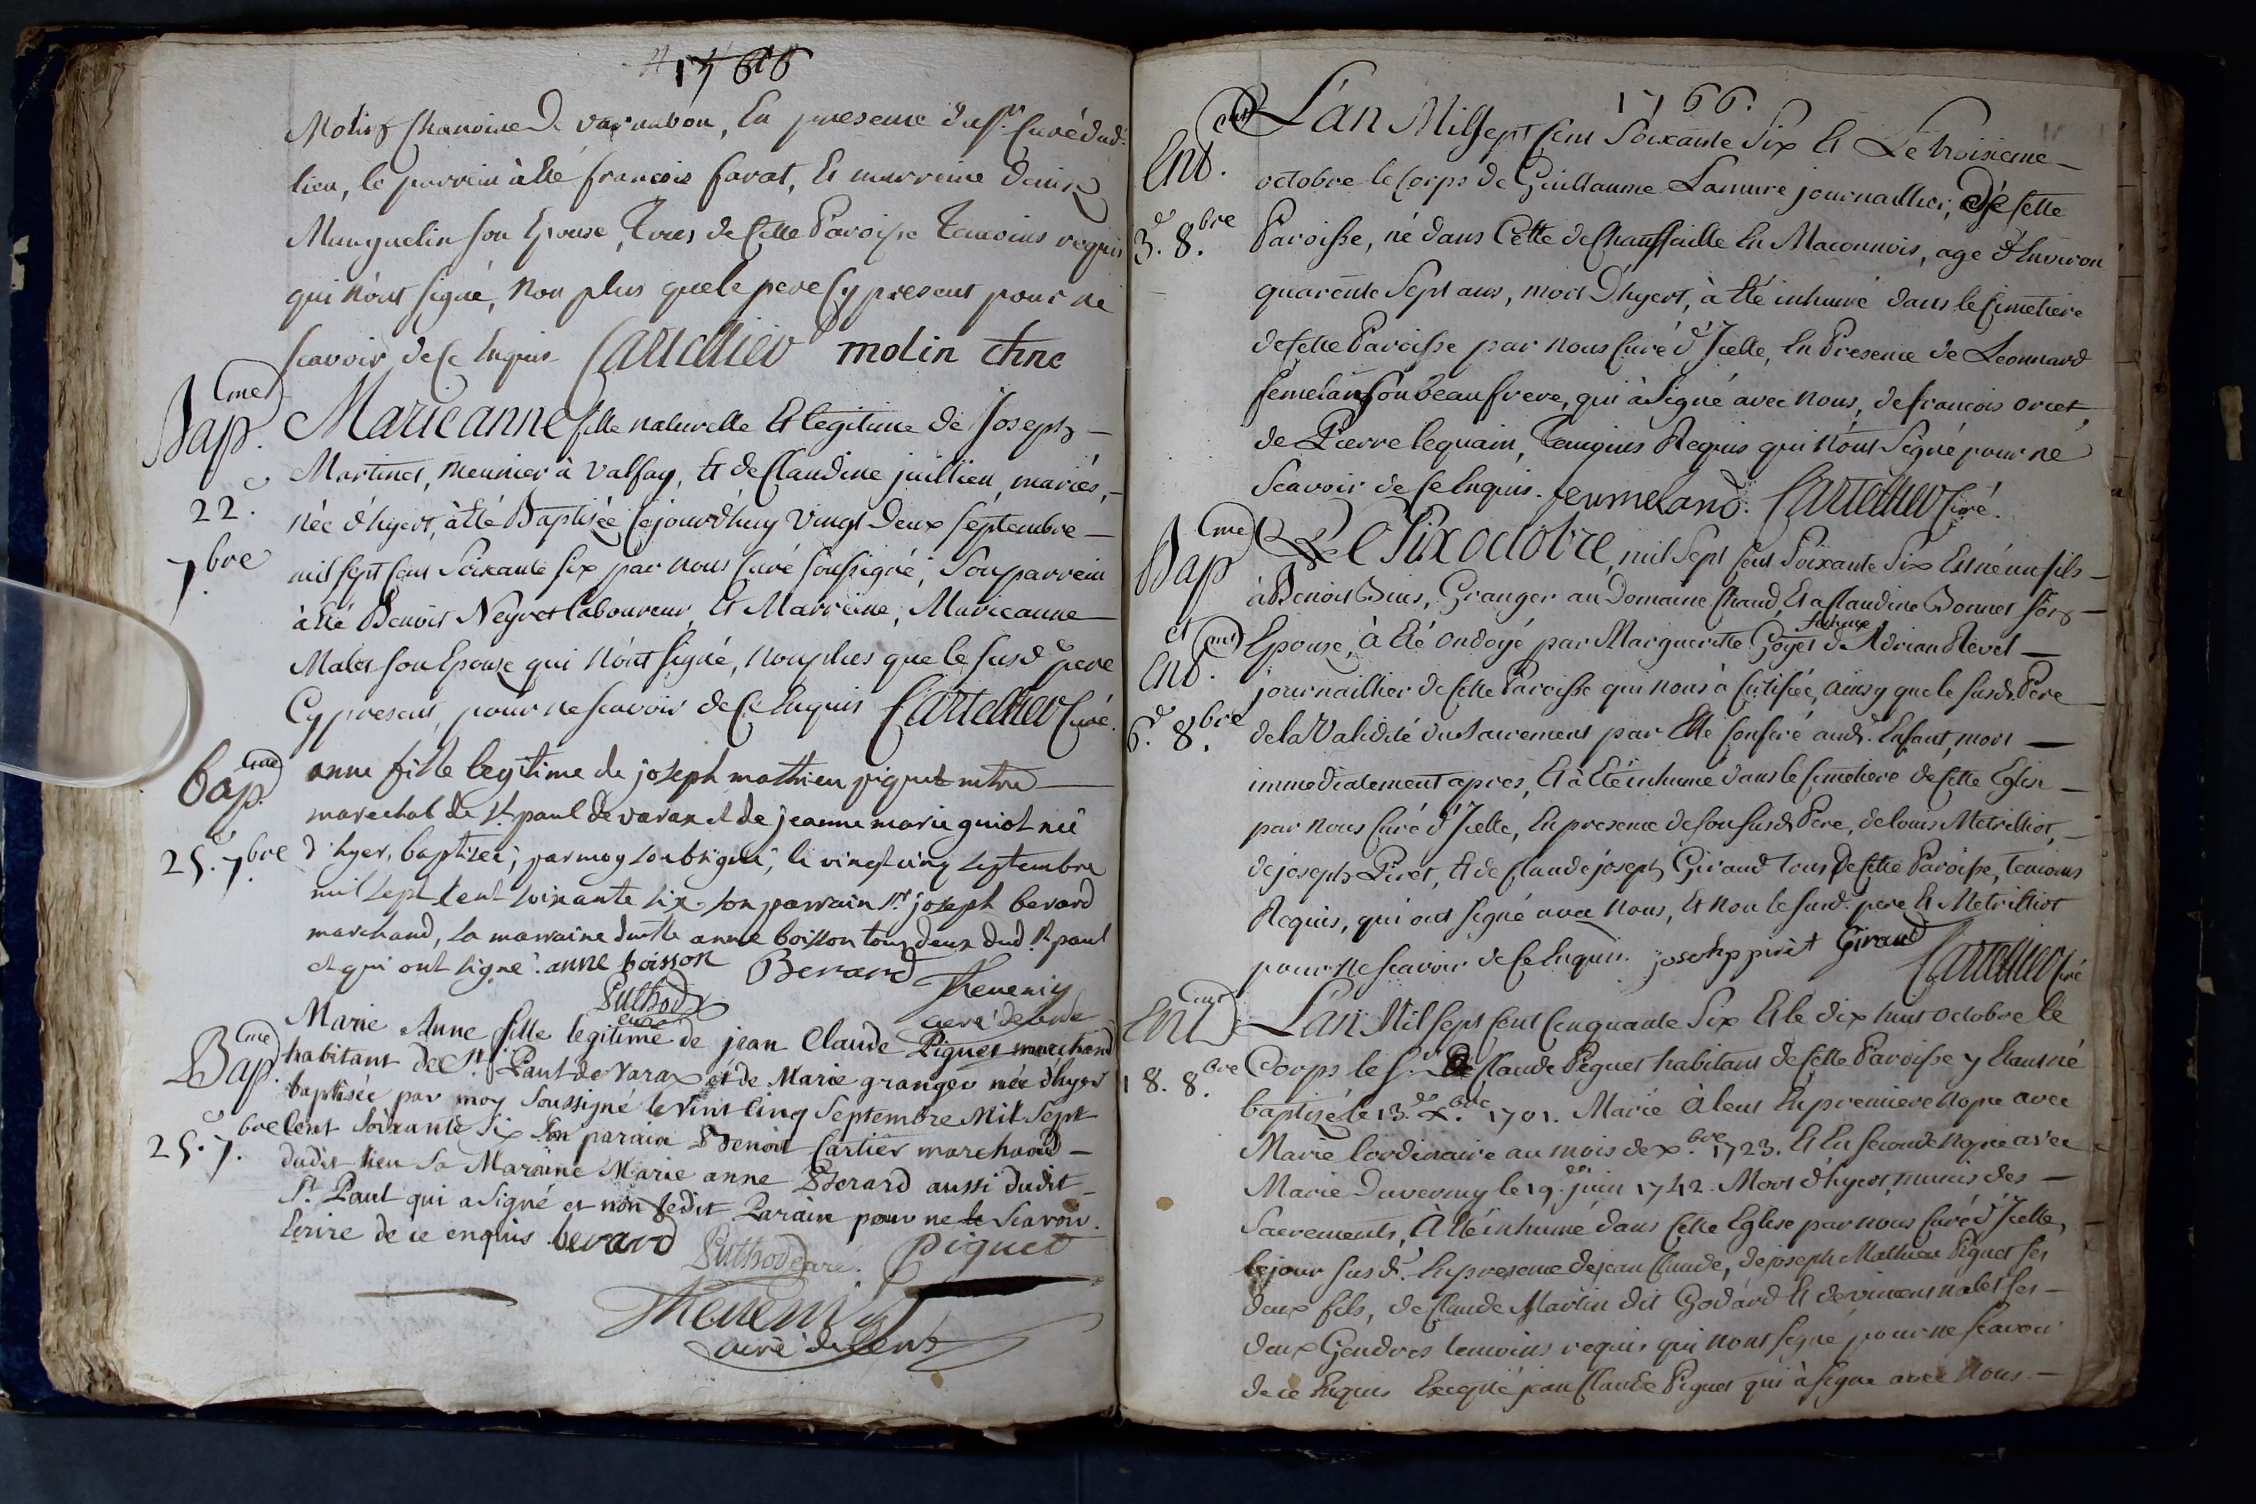 1766
Molin Chanoine de varambon, En presence du sr. Curé dud.
lieu, le parrein à été francois favat, Et marreine denise
Manguelin son Epouse, Tous de Cette Paroisse Temoins requis
qui n'ont signé, Non plus que le pere Cy present pour ne
scavoir de Ce Enquis Cartellier molin chne
Bap.me 22.e 7.bre
Marieanne fille naturelle Et legitime de Joseph
Martinet, Meunier à Valfay, Et de Claudine juillien, mariés,
née d'hyert, à été Baptisée Cejourd'huy Vingt Deux Septembre
mil sept Cent Soixante six par Nous Curé Soussigné, Son parrein
à été Benoit Neyret laboureur, Et Marreine, Marieanne
Malet son Epouse qui N'ont signé, Non plus que le susd. pere
Cy present, pour ne scavoir de Ce Enquis Cartellier Curé.
bap.me 25.e 7.bre
anne fille legitime de joseph mathieu piquet mtre
marechal de st. paul de varax et de jeanne marie guiot née
d'hyer, baptisée, par moy soubsigné, le vingt cinq septembre
mil sept cent soixante six son parrain sr. joseph berard
marchand, sa marraine dlle anne boisson tous deux dud. st. paul
et qui ont signé. anne boisson Berard Thevenin
Puthod curé curé de Lent
Bap.me 25.e 7.bre
Marie Anne fille legitime de jean Claude Piguet marchand
habitant de St. Paul de Varax et de Marie granger née d'hyer
baptisée par moy Soussigné le vint Cinq Septembre Mil Sept
Cent Soixante Six Son parain Benoit Cartier marchand
dudit lieu Sa Maraine Marie anne Berard aussi dudit
St. Paul qui a Signé et non ledit Parain pour ne le Scavoir
Ecrire de ce enquis. berard Puthod curé. Piguet
Thevenin
curé de Lent
1766.
Ent.mt 3.e 8.bre
L'an Mil sept Cent Soixante Six Et Le troisieme
octobre le Corps de Guillaume Lamure journaillier, de Cette
Paroisse, né dans Cette de Chauffaille En Maconnois, agé d'Environ
quarente Sept ans, mort D'hyert, à été inhumé dans le Cimetiere
de Cette Paroisse par Nous Curé d'Icelle, En Presence de Leonnard
femeland son beau frere, qui à Signé avec Nous, de francois oriet,
de Pierre lequain, Temoins Requis qui N'ont Signé pour ne
Scavoir de Ce Enquis. femeland. Cartellier Curé.
Bap.me et Ent.mt 6.e 8.bre
Le Six octobre mil Sept Cent Soixante Six Est né un fils
à Benoit Bius, Granger au Domaine Chaud, Et a Claudine Bonnet son
Epouse, à Eté ondoyé par Marguerite Goyet femme d'Adrian Revel
journaillier de Cette Paroisse qui Nous à Certifiée, ainsy que le susd. Pere
de la Validité du Sacrement par Elle Conferé aud. Enfant, mort
immediatement apres, Et à Eté inhumé dans le Cimetiere de Cette Eglise
par Nous Curé d'Icelle, En presence de son susd. Pere, de louis Metrilliot,
de joseph Piret, Et de Claude joseph Giraud tous De Cette Paroisse, Temoins
Requis, qui ont Signé avec Nous, Et Non le susd. pere Et Metrilliot
pour Ne scavoir de Ce Enquis. joseph piret Giraud Cartellier Curé
Ent.mt 18. 8.bre
L'an Mil Sept Cent Cinquante Six Et le dix huit Octobre le
Corps le Sr. Claude Piguet habitant de Cette Paroisse y Etant né
baptizé le 13.e X.bre 1701. Marié à Lent En premiere Nopce avec
Marie lordinaire au mois de x.bre 1723. Et En Seconde Nopce avec
Marie Duvernay le 19.e juin 1742. Mort d'hyert, munis des
Sacrements, à été inhumé dans Cette Eglise par nous Curé d'Icelle,
le jour Susd. En presence de jean Claude, de joseph Mathieu Piguet ses
deux fils, de Claude Martin dit Godard Et de vincent nalet ses
deux Gendres temoins requis qui n'ont signé pour ne scavoir
de ce Enquis Excepté jean Claude Piguet qui à signé avec Nous.